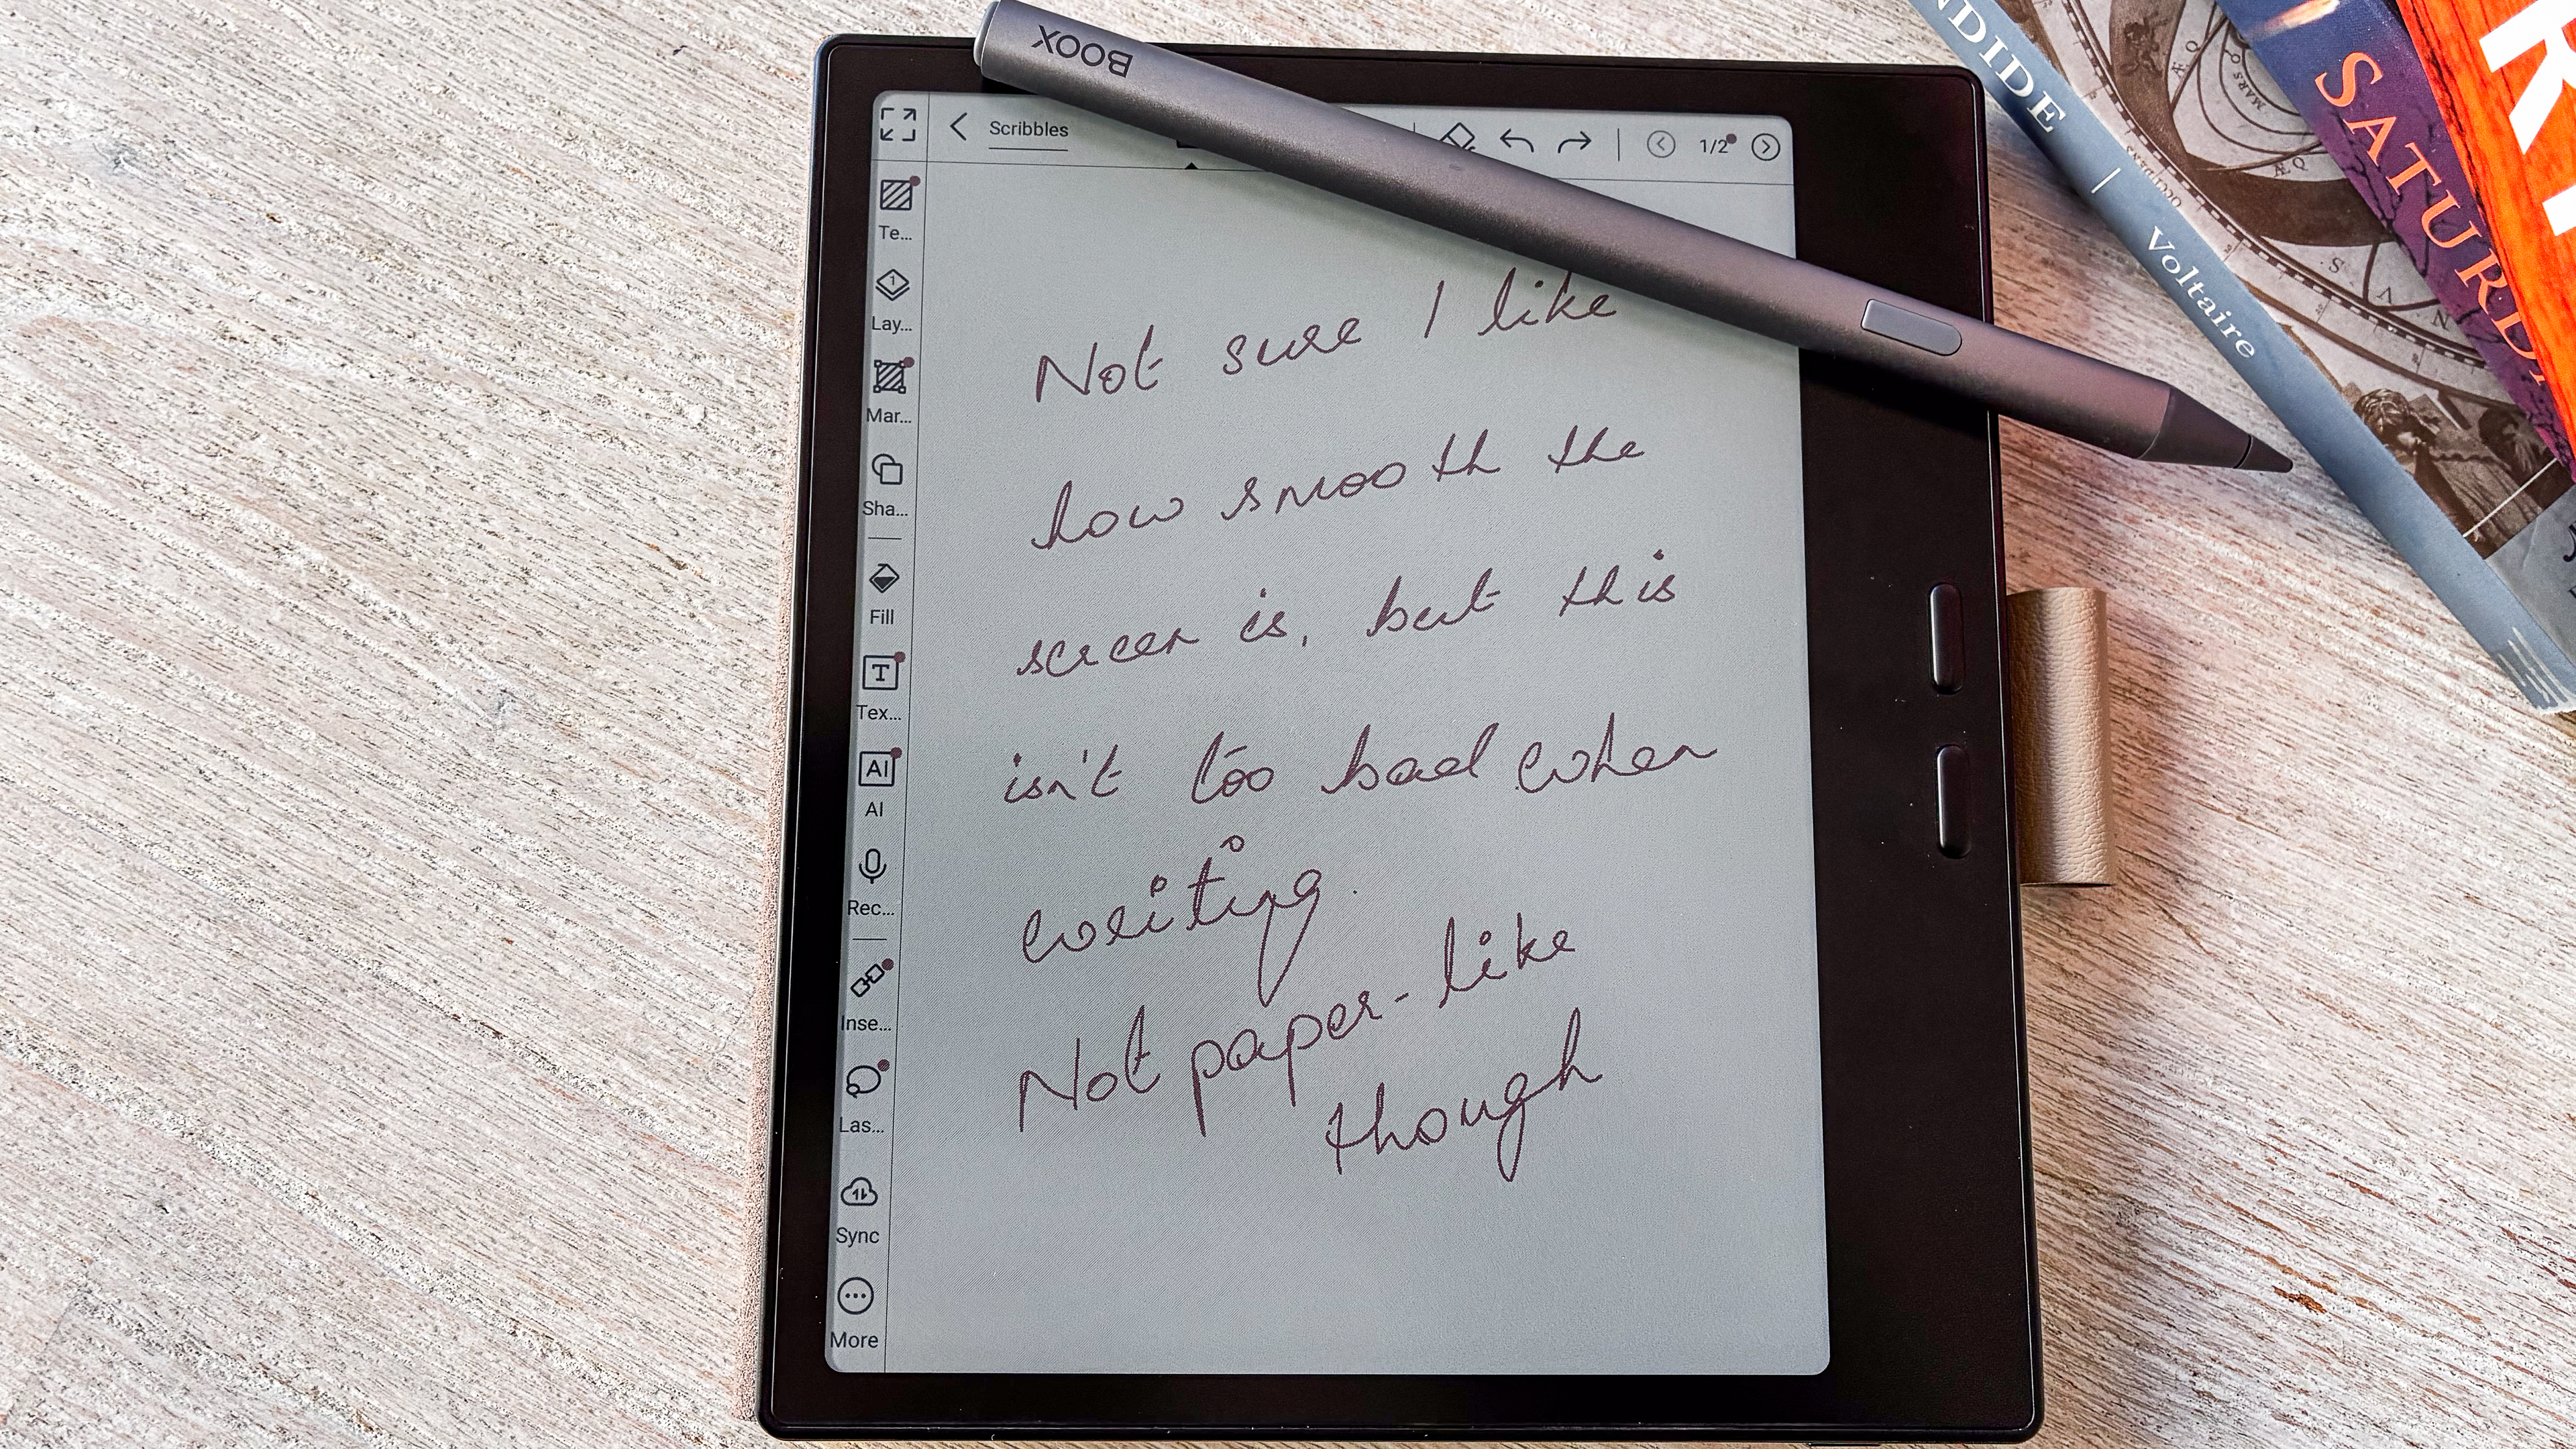 BOOX
Scribbles
1/2
Te...
1
Lay...
Mar...
Sha...
Fill
T
Tex...
AI
AI
Rec...
Inse...
Las...
Sync
More
Not sure I like
how smooth the
screen is, but this
isn't too bad when
writing.
Not paper-like
though
NDIDE | Voltaire
MARS
OCCIDENS
ÆQ
S
V
N
SATURDA